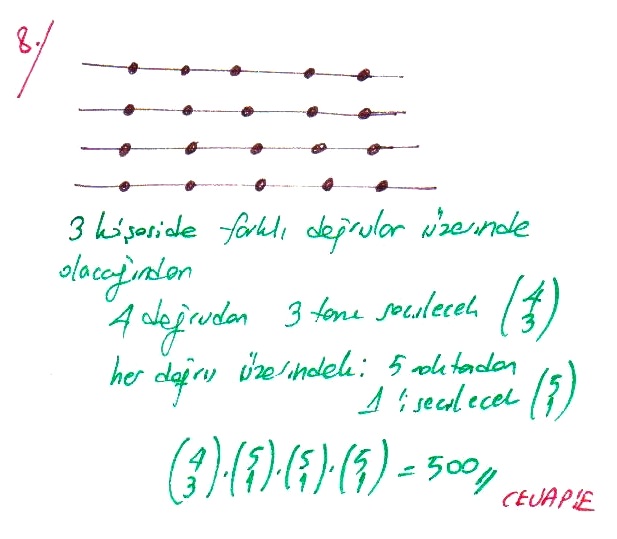 8./
3 köşeside farklı doğrular üzerinde
olacağından
4 doğrudan 3 tane seçilecek (4 3)
her doğru üzerindeki 5 noktadan
1'i seçilecek (5 1)
(4 3).(5 1).(5 1).(5 1) = 500//
CEVAP:E